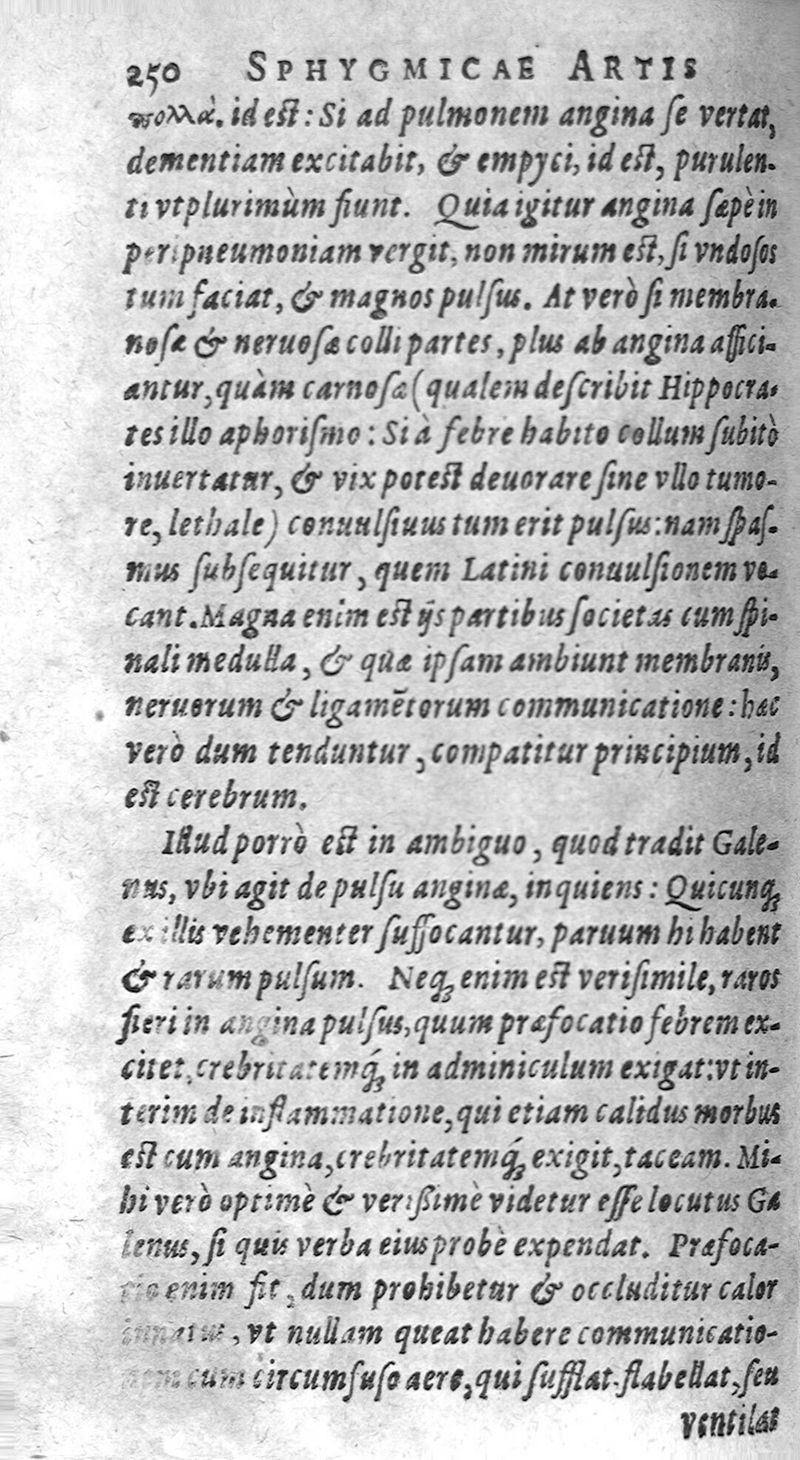 250 SPHYGMICAE ARTIS
πολλὰ. id est: Si ad pulmonem angina se vertat,
dementiam excitabit, & empyci, id est, purulen-
ti vtplurimùm fiunt. Quia igitur angina sæpè in
peripneumoniam vergit, non mirum est, si vndosos
tum faciat, & magnos pulsus. At verò si membra-
nosæ & neruosæ colli partes, plus ab angina affici-
antur, quàm carnosæ (qualem describit Hippocra-
tes illo aphorismo: Si à febre habito collum subitò
inuertatur, & vix potest deuorare sine vllo tumo-
re, lethale) conuulsiuus tum erit pulsus: nam spas-
mus subsequitur, quem Latini conuulsionem vo-
cant. Magna enim est ijs partibus societas cum spi-
nali medulla, & quæ ipsam ambiunt membranis,
neruorum & ligamētorum communicatione: hæc
verò dum tenduntur, compatitur principium, id
est cerebrum.
Illud porrò est in ambiguo, quod tradit Gale-
nus, vbi agit de pulsu anginæ, inquiens: Quicunq;
ex illis vehementer suffocantur, paruum hi habent
& rarum pulsum. Neq; enim est verisimile, raros
fieri in angina pulsus, quum præfocatio febrem ex-
citet, crebritatemq́; in adminiculum exigat: vt in-
terim de inflammatione, qui etiam calidus morbus
est cum angina, crebritatemq́; exigit, taceam. Mi-
hi verò optimè & verissimè videtur esse locutus Ga
lenus, si quis verba eius probè expendat. Præfoca-
tio enim fit, dum prohibetur & occluditur calor
innatus, vt nullam queat habere communicatio-
nem cum circumfuso aere, qui sufflat, flabellat, seu
ventilat